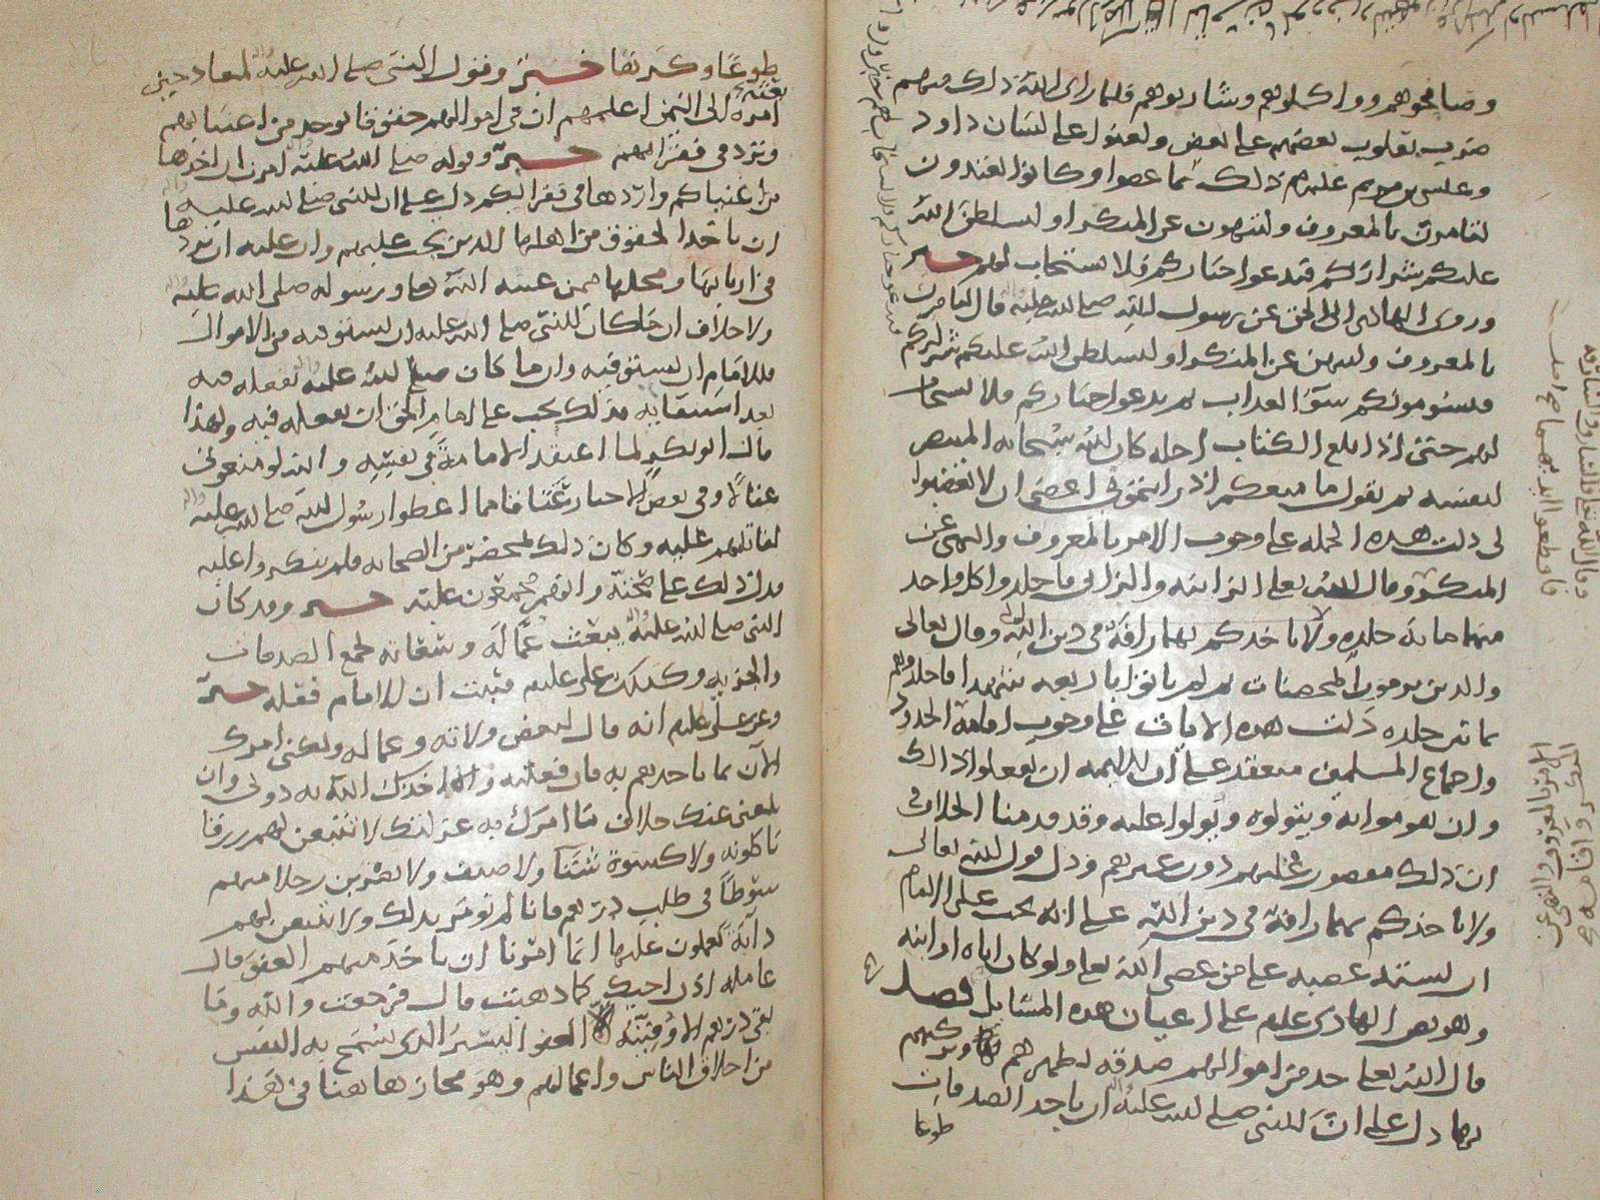 وصافحوهم وواكلوهم وشاربوهم فلما راى الله ذلك منهم
ضرب بقلوب بعضهم على بعض ولعنوا على لسان داود
وعيسى بن مريم عليهم ذلك بما عصوا وكانوا يعتدون
لتامرن بالمعروف ولتنهون عن المنكر او ليسلطن الله
عليكم شراركم فيدعوا خياركم فلا يستجاب لهم خبر
وروى الهادى الى الحق عن رسول الله صلى الله عليه قال لتامرن
بالمعروف ولتنهن عن المنكر او ليسلطن الله عليكم شراركم
فليسومونكم سوء العذاب ثم يدعوا خياركم فلا يستجاب
لهم حتى اذا بلغ الكتاب اجله كان الله سبحانه المنتصر
لنفسه ثم يقول ما منعكم اذ رايتمونى اعصى ان لا تغضبوا
لى دلت هذه الجمله على وجوب الامر بالمعروف والنهى عن
المنكر وقال الله تعالى الزانيه والزانى فاجلدوا كل واحد
منهما مائه جلده ولا تاخذكم بهما رافة فى دين الله وقال تعالى
والذين يرمون المحصنات ثم لم ياتوا باربعه شهدا فاجلدوهم
ثمانين جلده دلت هذه الايات على وجوب اقامة الحدود
واجماع المسلمين منعقد على ان للايمه ان يفعلوا ذلك
وان يقوموا به ويتولوه ويولوا عليه وقد قدمنا الخلاف
ان ذلك مقصور عليهم دون غيرهم ودل قول الله تعالى
ولا تاخذكم بهما رافة فى دين الله على انه يجب على الامام
ان يشتد غضبه على من عصى الله تعالى ولو كان اباه او ابنه
وهو نص الهادى عليلم على اعيان هذه المسايل فصل
قال الله تعالى خذ من اموالهم صدقه تطهرهم وتزكيهم
بها دل على ان للنبى صلى الله عليه ان ياخذ الصدقات
طوعا
وقال الله تعالى والسارق والسارقه
فاقطعوا ايديهما
الامر بالمعروف والنهى عن
المنكر واقامه
طوعًا وكرها خبر وقول النبى صلى الله عليه لمعاذ حين
بعثه
امره الى اليمن اعلمهم ان فى اموالهم حقوقا توخذ من اغنيايهم
وترد فى فقرايهم خبر وقوله صلى الله عليه امرت ان اخذها
من اغنياكم واردها فى فقرايكم دل على ان للنبى صلى الله عليه
ان ياخذ الحقوق من اهلها الذين يجب عليهم وان عليه ان يردها
فى اربابها ومحلها فمن عينه الله تعالى ورسوله صلى الله عليه
ولا خلاف ان ما كان للنبى صلى الله عليه ان يستوفيه من الاموال
فللامام ان يستوفيه وان ما كان صلى الله عليه يفعله فيه
بعد استيفايه فذلك يجب على امام الحق ان يفعله فيه ولهذا
قال ابو بكر لما اعتقد الامامة فى نفسه والله لو منعونى
عقالا وفى بعض الاخبار عناقا مما اعطوا رسول الله صلى الله عليه
لقاتلتهم عليه وكان ذلك بمحضر من الصحابه فلم ينكروا عليه
فدل ذلك على صحته وانهم مجمعون عليه خبر وقد كان
النبى صلى الله عليه يبعث عماله وسعاته لجمع الصدقات
والجزيه وكذلك على عليلم فثبت ان للامام فعله خبر
وعن على عليلم انه قال لبعض ولاته وعماله ولكنى امرك
الان بما تاخذهم به فان فعلته والا اخذك الله به دونى وان
بلغنى عنك خلاف ما امرتك به عزلتك لا تتبعن لهم رزقا
ياكلونه ولا كسوة شتا ولا صيف ولا تضربن رجلا منهم
سوطا فى طلب درهم فانا لم نومر بذلك ولا تبيعن لهم
دابة يعملون عليها انما امرنا ان ناخذ منهم العفو قال
عامله اذن اجيك كما ذهبت قال فرجعت والله وما
بقى درهم الا وفيته العفو اليسير الذى تسمح به النفس
من اخلاق الناس واعمالهم وهو مجاز هاهنا فى هذا